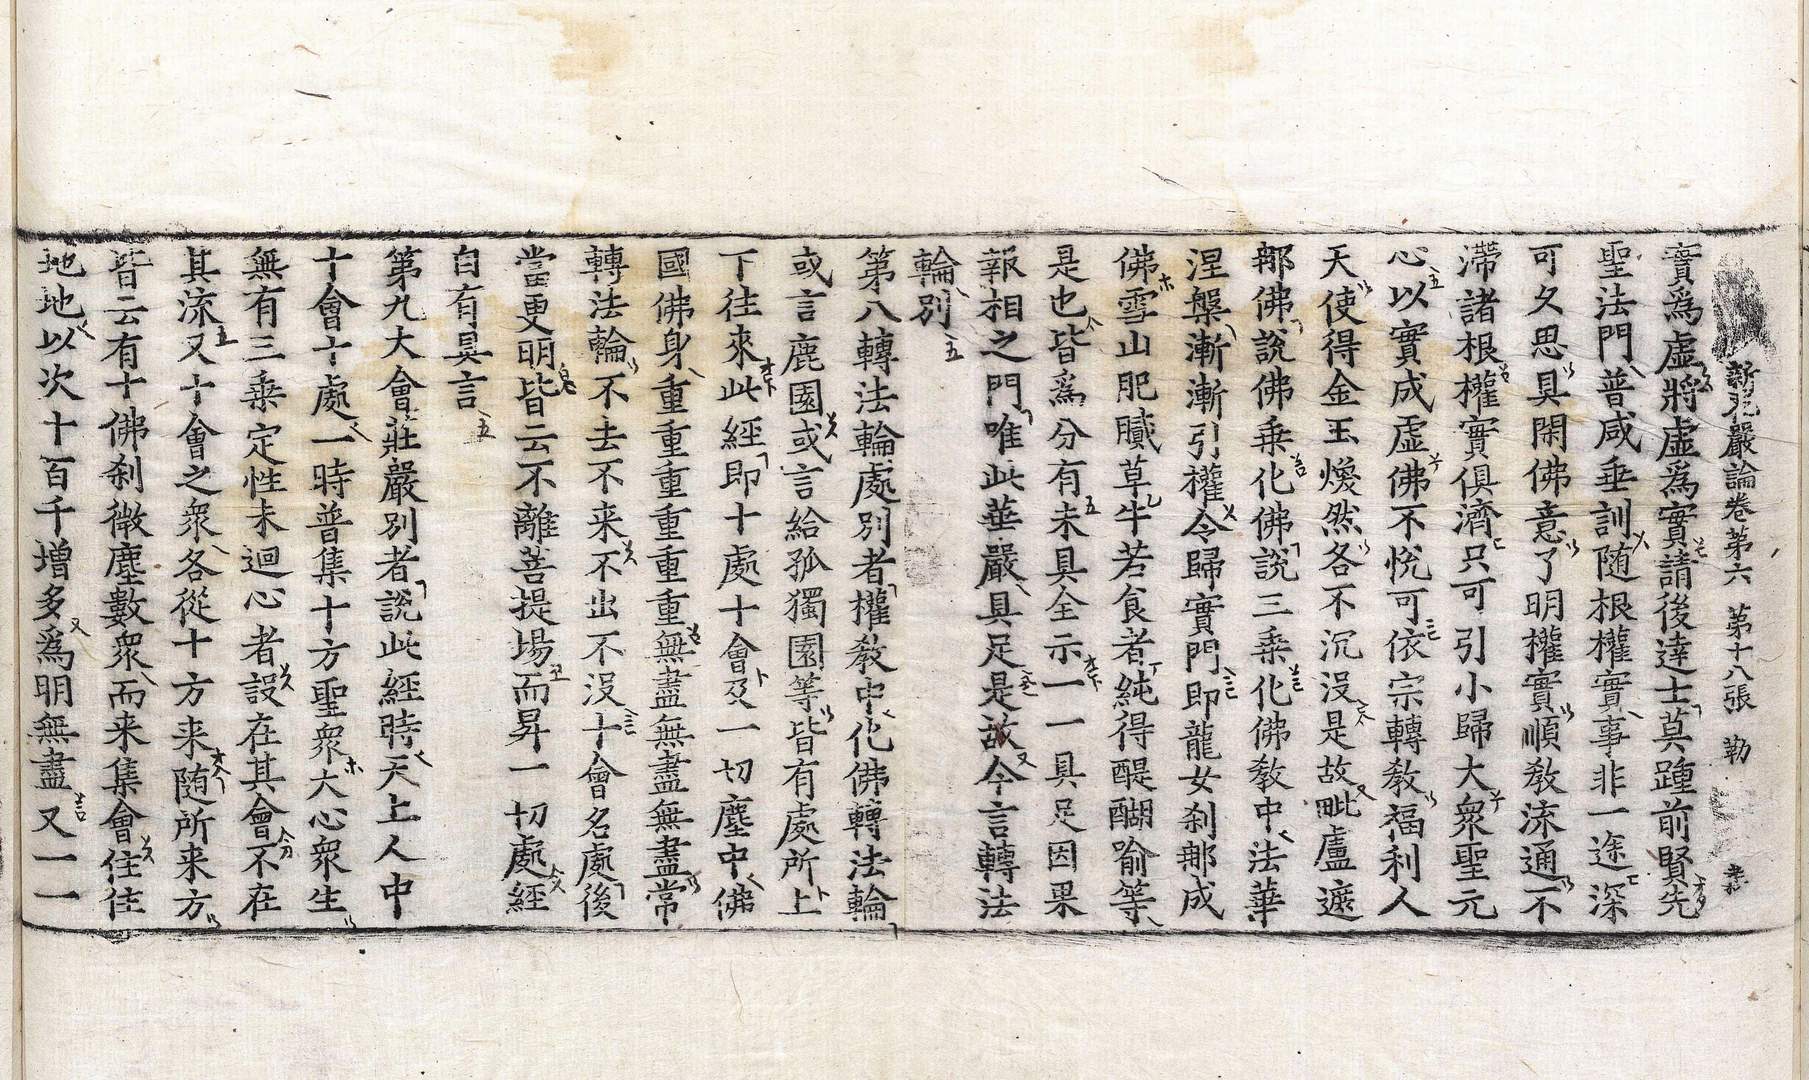 新花嚴論卷第六 第十八張 勒
實爲虛將虛爲實請後達士莫踵前賢先
聖法門普咸垂訓隨根權實事非一途深
可久思具閑佛意了明權實順教流通不
滯諸根權實俱濟只可引小歸大衆聖元
心以實成虛佛不悅可依宗轉教福利人
天使得金玉煥然各不沉沒是故毗盧遮
那佛說佛乘化佛說三乘化佛教中法華
涅槃漸漸引權令歸實門即龍女刹那成
佛雪山肥膩草牛若食者純得醍醐喻等
是也皆爲分有未具全示一一具足因果
報相之門唯此華嚴具足是故今言轉法
輪別
第八轉法輪處別者權教中化佛轉法輪
或言鹿園或言給孤獨園等皆有處所上
下往來此經即十處十會及一切塵中佛
國佛身重重重重重無盡無盡無盡常
轉法輪不去不来不出不沒十會名處後
當更明皆云不離菩提場而昇一切處經
自有具言
第九大會莊嚴別者說此經時天上人中
十會十處一時普集十方聖衆大心衆生
無有三乘定性未迴心者設在其會不在
其流又十會之衆各從十方来隨所来方
皆云有十佛刹微塵數衆而来集會住住
地地以次十百千增多爲明無盡又一一